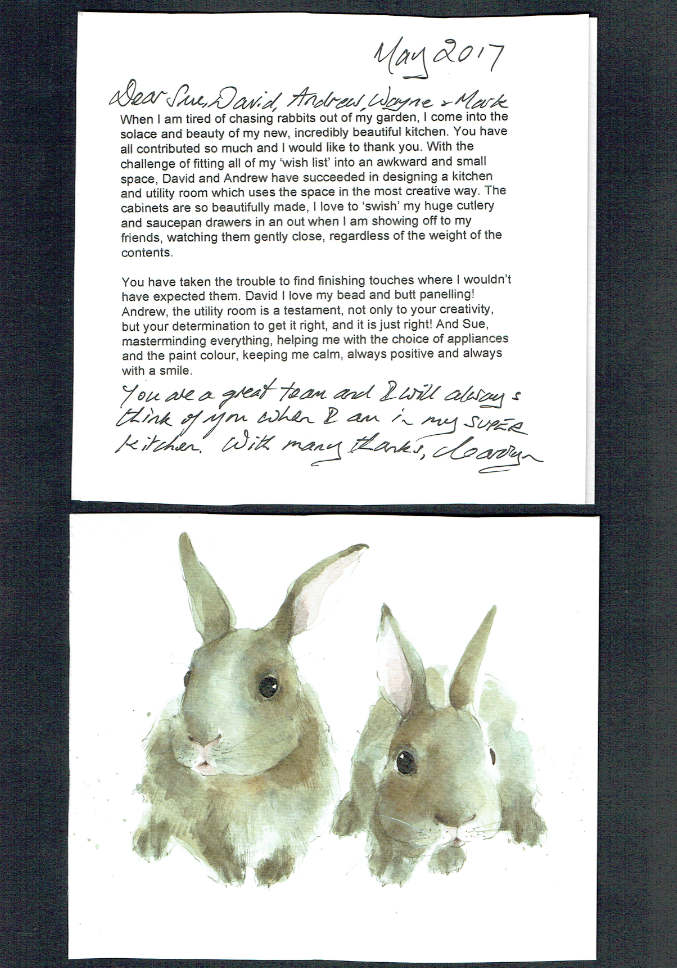 May 2017
Dear Sue, David, Andrew, Wayne & Mark
When I am tired of chasing rabbits out of my garden, I come into the
solace and beauty of my new, incredibly beautiful kitchen. You have
all contributed so much and I would like to thank you. With the
challenge of fitting all of my 'wish list' into an awkward and small
space, David and Andrew have succeeded in designing a kitchen
and utility room which uses the space in the most creative way. The
cabinets are so beautifully made, I love to 'swish' my huge cutlery
and saucepan drawers in an out when I am showing off to my
friends, watching them gently close, regardless of the weight of the
contents.
You have taken the trouble to find finishing touches where I wouldn't
have expected them. David I love my bead and butt panelling!
Andrew, the utility room is a testament, not only to your creativity,
but your determination to get it right, and it is just right! And Sue,
masterminding everything, helping me with the choice of appliances
and the paint colour, keeping me calm, always positive and always
with a smile.
You are a great team and I will always
think of you when I am in my SUPER
kitchen. With many thanks,